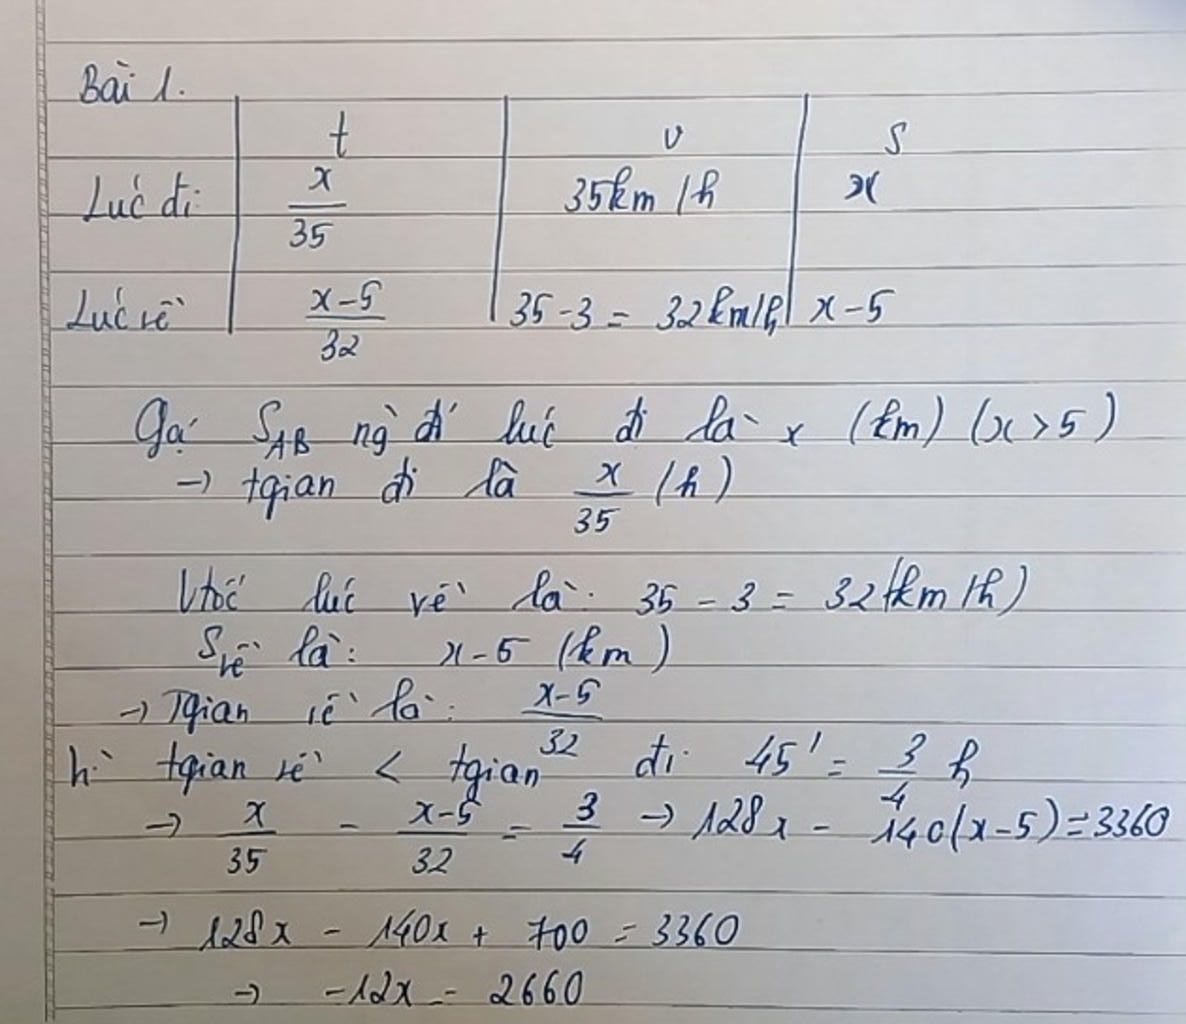 Bài 1.
t v S
Lúc đi: x/35 35km/h x
Lúc về x-5/32 35-3 = 32km/h x-5
Gọi S_AB ng đi lúc đi là x (km) (x>5)
→ tgian đi là x/35 (h)
Vtốc lúc về là: 35 - 3 = 32(km/h)
S_về là: x-5 (km)
→ Tgian về là: x-5/32
tgian về < tgian đi 45' = 3/4 h
→ x/35 - x-5/32 = 3/4 → 128x - 140(x-5)=3360
→ 128x - 140x + 700 = 3360
→ -12x = 2660